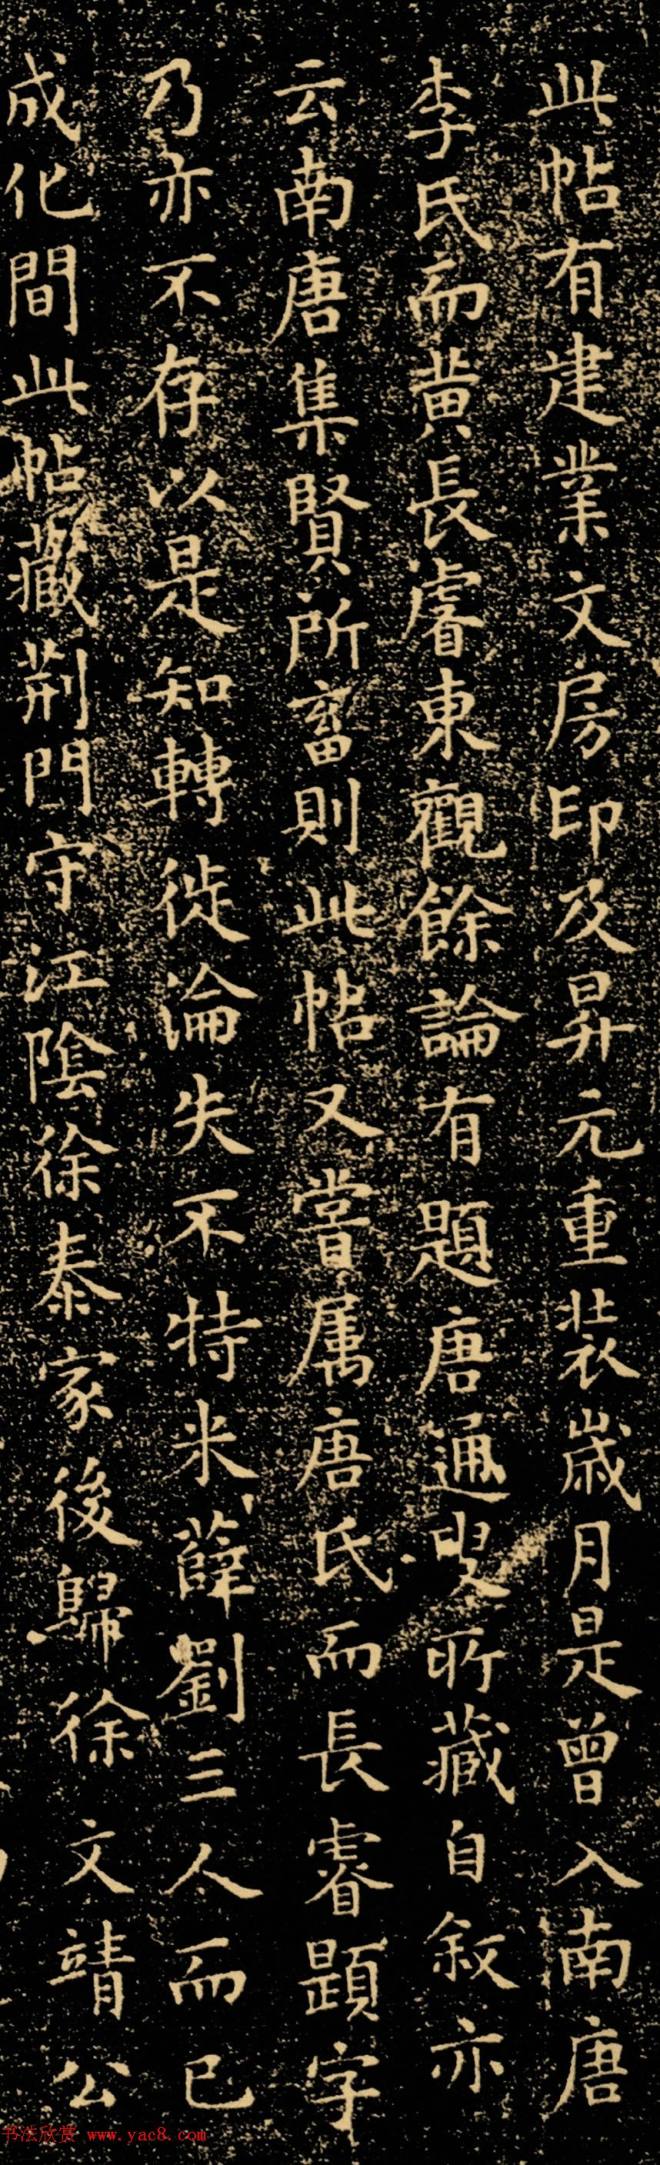 此帖有建業文房印及昇元重裝歲月是曾入南唐
李氏而黄長睿東觀餘論有題唐通叟所藏自敘亦
云南唐集賢所畜則此帖又嘗属唐氏而長睿題字
乃亦不存以是知轉徙淪失不特米薛劉三人而已
成化間此帖藏荆門守江陰徐泰家後歸徐文靖公
书法欣赏 www.yac8.com